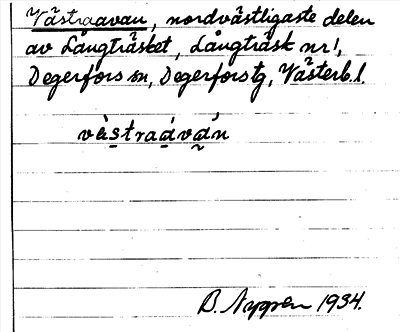 Västraavan, nordvästligaste delen
av Långträsket, Långträsk nr 1,
Degerfors sn, Degerfors tg, Västerb. l.
vàstraávdn
B. Nygren 1934.